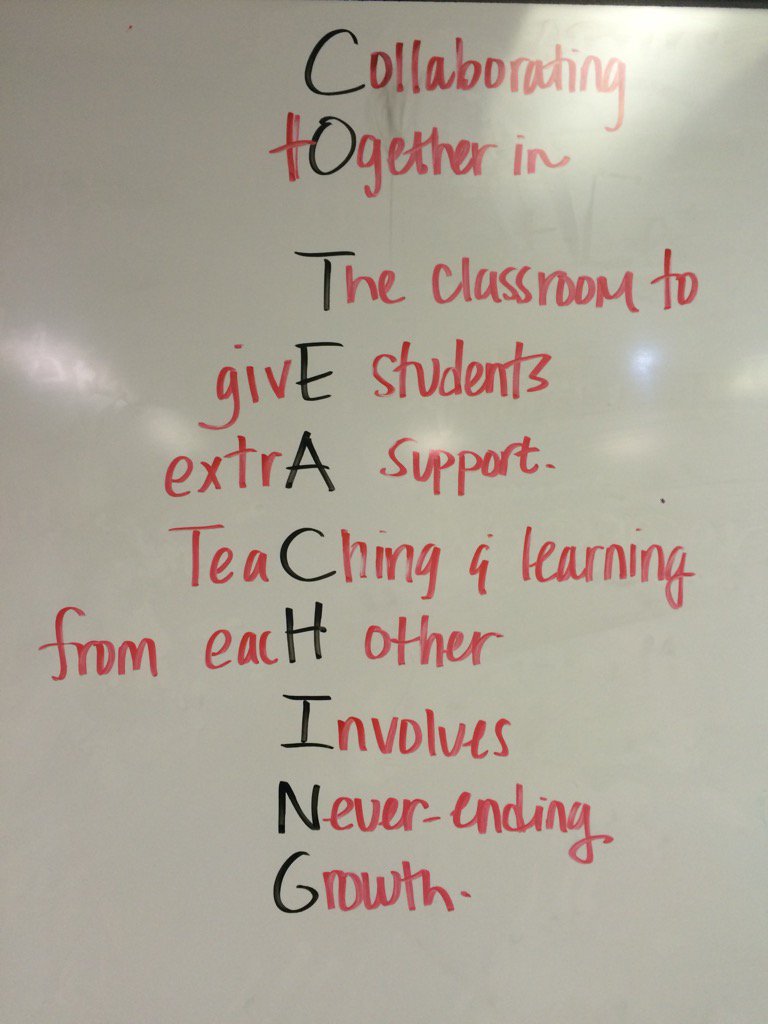 Collaborating
tOgether in
The classroom to
givE students
extrA support.
TeaChing & learning
from eacH other
Involves
Never-ending
Growth.